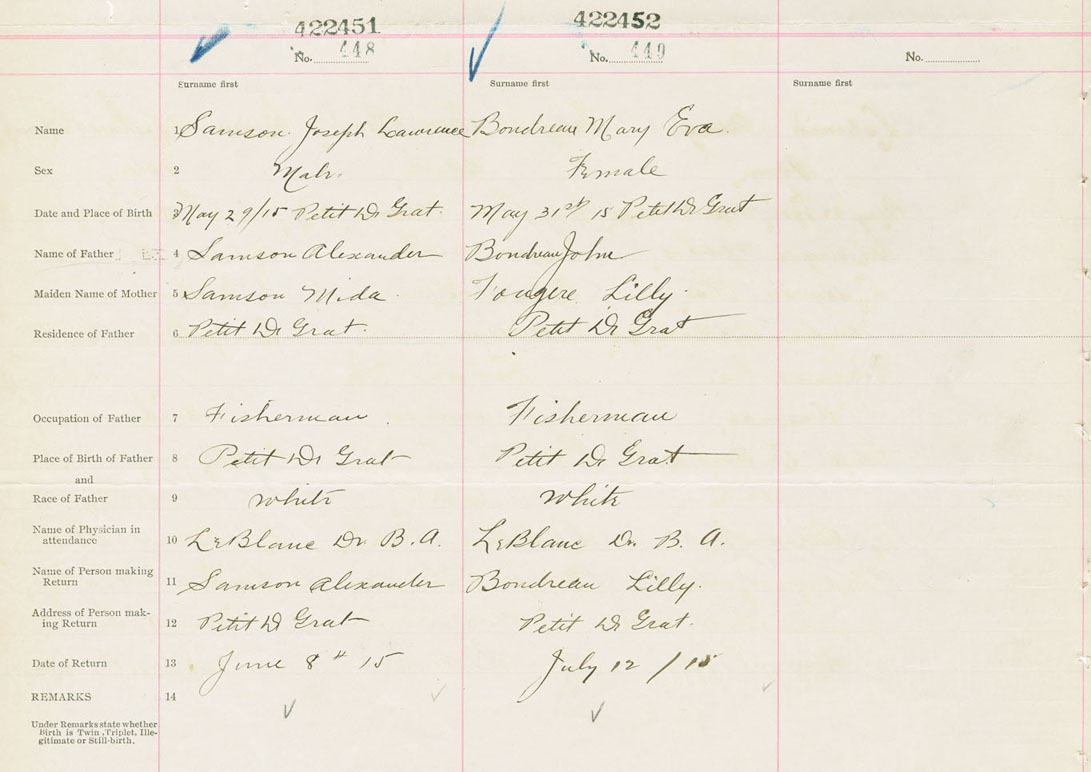 422451 422452
No. 448 No. 449 No.
Surname first Surname first Surname first
Name 1 Samson Joseph Lawrence Boudreau Mary Eva
Sex 2 Male Female
Date and Place of Birth 3 May 29/15 Petit De Grat. May 31st 15 Petit De Grat
Name of Father 4 Samson Alexander Boudreau John
Maiden Name of Mother 5 Samson Mida Fougere Lilly
Residence of Father 6 Petit De Grat. Petit De Grat
Occupation of Father 7 Fisherman Fisherman
Place of Birth of Father 8 Petit De Grat Petit De Grat
and
Race of Father 9 White White
Name of Physician in
attendance 10 LeBlanc Dr. B. A. LeBlanc Dr. B. A.
Name of Person making
Return 11 Samson Alexander Boudreau Lilly.
Address of Person mak-
ing Return 12 Petit De Grat Petit De Grat.
Date of Return 13 June 8th 15 July 12 / 15
REMARKS 14
Under Remarks state whether
Birth is Twin, Triplet, Ille-
gitimate or Still-birth.